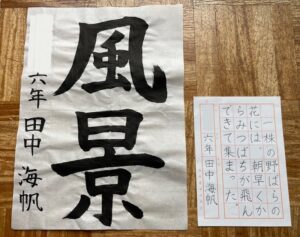 風景
六年 田中 海帆
一株の野ばらの
花には 朝早くか
らみつばちが飛ん
できて集まった。
六年 田中 海帆